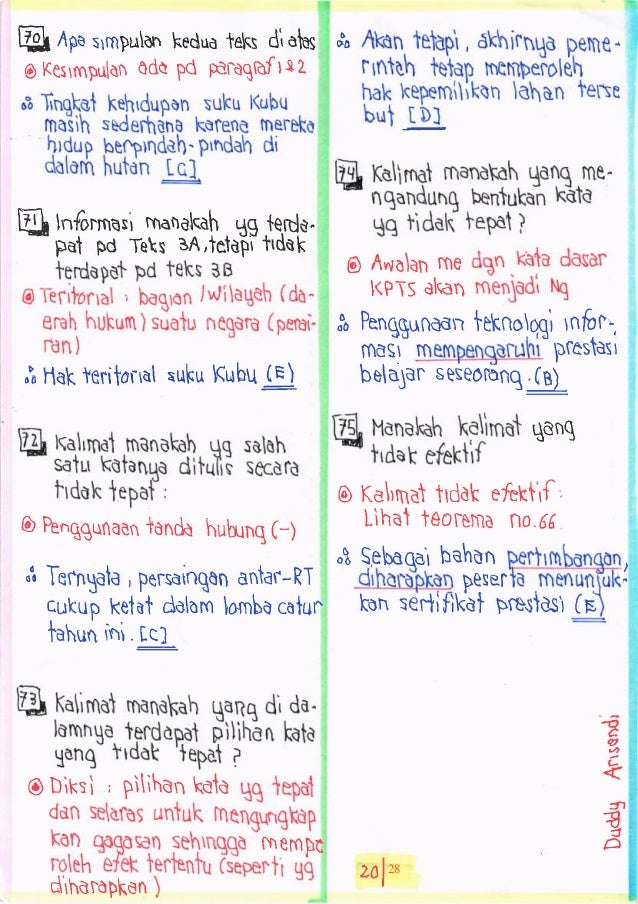 70. Apa simpulan kedua teks di atas
Kesimpulan ada pd paragraf 1 & 2
∴ Tingkat kehidupan suku Kubu
masih sederhana karena mereka
hidup berpindah-pindah di
dalam hutan [C]
71. Informasi manakah yg terda-
pat pd Teks 3A, tetapi tidak
terdapat pd teks 3B
Teritorial : bagian / wilayah (da-
erah hukum) suatu negara (perai-
ran)
∴ Hak teritorial suku Kubu (E)
72. Kalimat manakah yg salah
satu katanya ditulis secara
tidak tepat :
Penggunaan tanda hubung (-)
∴ Ternyata, persaingan antar-RT
cukup ketat dalam lomba catur
tahun ini. [C]
73. Kalimat manakah yang di da-
lamnya terdapat pilihan kata
yang tidak tepat ?
Diksi : pilihan kata yg tepat
dan selaras untuk mengungkap
kan gagasan sehingga mempe
roleh efek tertentu (seperti yg
diharapkan)
∴ Akan tetapi, akhirnya peme-
rintah tetap memperoleh
hak kepemilikan lahan terse
but [D]
74. Kalimat manakah yang me-
ngandung bentukan kata
yg tidak tepat ?
Awalan me dgn kata dasar
KPTS akan menjadi Ng
∴ Penggunaan teknologi infor-
masi mempengaruhi prestasi
belajar seseorang. (B)
75. Manakah kalimat yang
tidak efektif
Kalimat tidak efektif :
Lihat teorema no. 66
∴ Sebagai bahan pertimbangan,
diharapkan peserta menunjuk-
kan sertifikat prestasi (E)
Duddy Arisandi
20 | 28